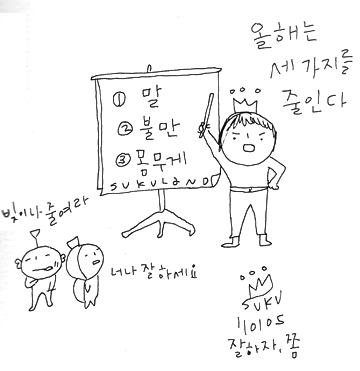 올해는
세 가지를
줄인다
① 말
② 불만
③ 몸무게
SUKULAND
빚이나 줄여라
너나 잘하세요
SUKU
110105
잘하자, 쫌